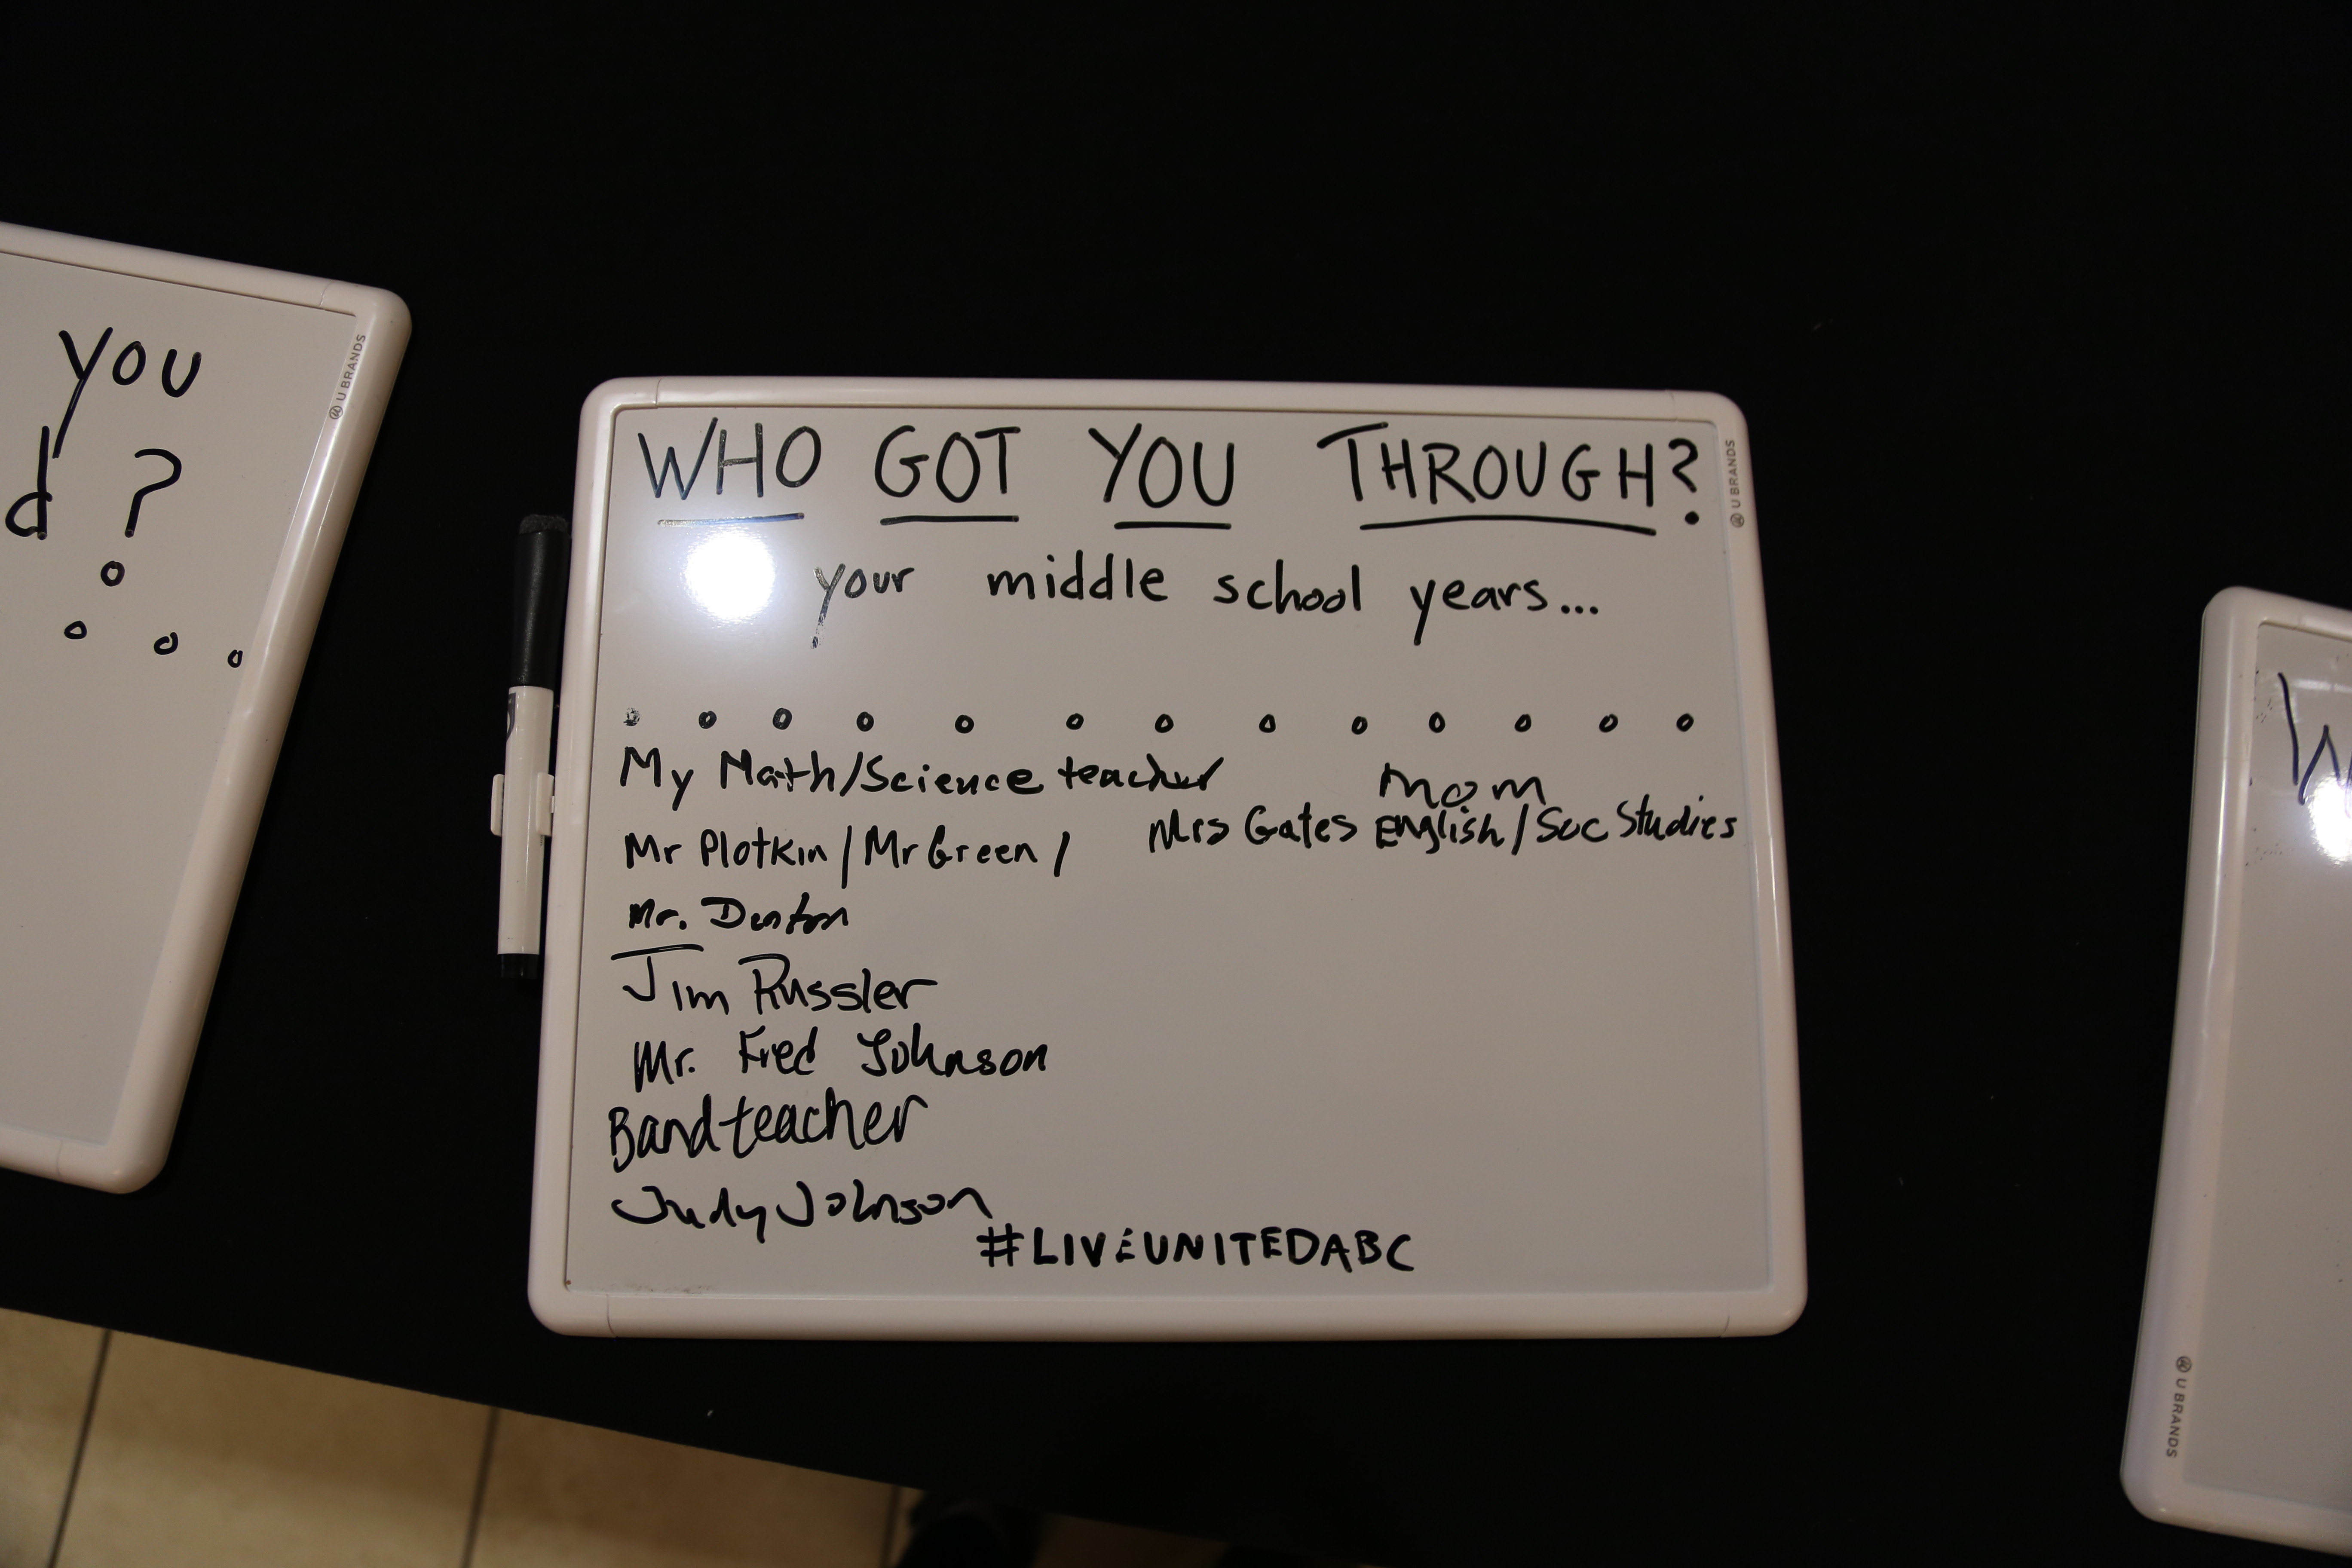 you
d ?
U BRANDS
WHO GOT YOU THROUGH?
your middle school years...
U BRANDS
My Math/Science teacher
Mom
Mr Plotkin / Mr Green /
Mrs Gates English / Soc Studies
Mr. Denton
Jim Russler
Mr. Fred Johnson
Band teacher
Judy Johnson
#LIVEUNITEDABC
W
U BRANDS